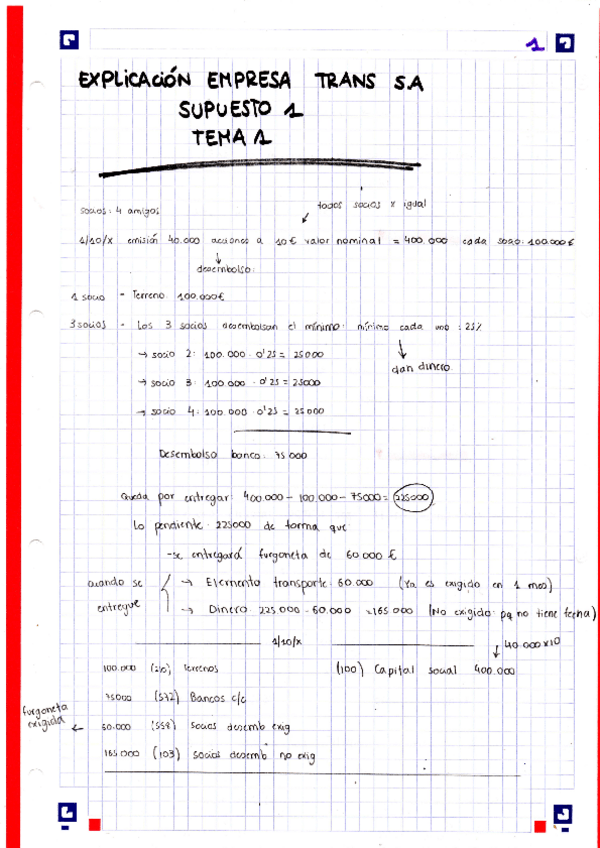 1
EXPLICACIÓN EMPRESA TRANS S.A
SUPUESTO 1
TEMA 1
todos socios x igual
socios: 4 amigos
1/10/x emisión 40.000 acciones a 10€ valor nominal = 400.000 cada socio: 100.000€
desembolso:
1 socio - Terreno 100.000€
3 socios - Los 3 socios desembolsan el mínimo: mínimo cada uno: 25%
→ socio 2: 100.000 · 0'25 = 25000
dan dinero
→ socio 3: 100.000 · 0'25 = 25000
→ socio 4: 100.000 · 0'25 = 25000
Desembolso banco: 75000
Queda por entregar: 400.000 - 100.000 - 75000 = 225000
Lo pendiente 225000 de forma que
- se entregará furgoneta de 60.000 €
cuando se entregue
→ Elemento transporte: 60.000 (Ya es exigido en 1 mes)
→ Dinero: 225.000 - 60.000 = 165000 (No exigido pq no tiene fecha)
1/10/x
40.000x10
100.000 (210) Terrenos (100) Capital social 400.000
75000 (572) Bancos c/c
furgoneta exigida
60.000 (558) socios desemb exig
165000 (103) socios desemb no exig